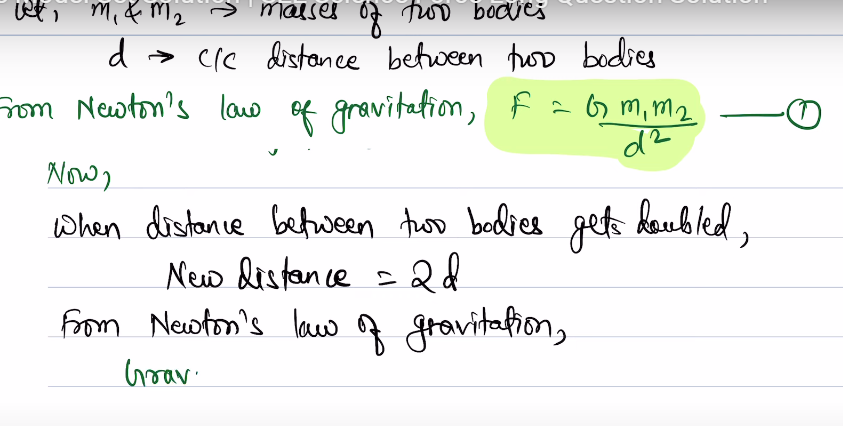 let, m₁ & m₂ → masses of two bodies
d → c/c distance between two bodies
From Newton's law of gravitation, F = G m₁m₂ / d² —— ①
Now,
When distance between two bodies gets doubled,
New distance = 2d
From Newton's law of gravitation,
Grav